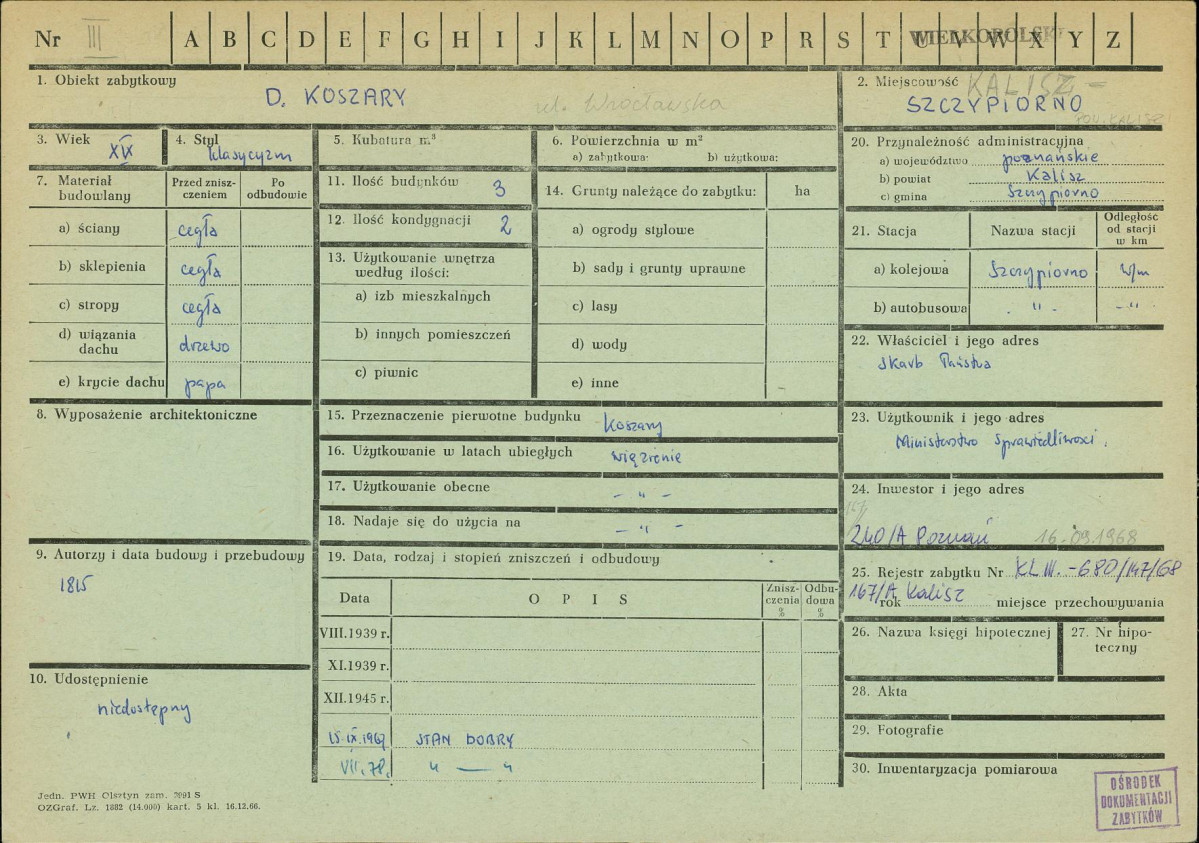 Nr III A B C D E F G H I J K L M N O P R S T U V W X Y Z
WIELKOPOLSKI
1. Obiekt zabytkowy
D. KOSZARY ul. Wrocławska
2. Miejscowość KALISZ
SZCZYPIORNO
POW. KALISZ
3. Wiek XIX
4. Styl klasycyzm
5. Kubatura m³
6. Powierzchnia w m²
a) zabytkowa: b) użytkowa:
7. Materiał budowlany
Przed zniszczeniem
Po odbudowie
a) ściany cegła
b) sklepienia cegła
c) stropy cegła
d) wiązania dachu drzewo
e) krycie dachu papa
11. Ilość budynków 3
12. Ilość kondygnacji 2
13. Użytkowanie wnętrza według ilości:
a) izb mieszkalnych
b) innych pomieszczeń
c) piwnic
14. Grunty należące do zabytku: ha
a) ogrody stylowe
b) sady i grunty uprawne
c) lasy
d) wody
e) inne
8. Wyposażenie architektoniczne
9. Autorzy i data budowy i przebudowy
1815
10. Udostępnienie
niedostępny
15. Przeznaczenie pierwotne budynku Koszary
16. Użytkowanie w latach ubiegłych więzienie
17. Użytkowanie obecne – " –
18. Nadaje się do użycia na – " –
19. Data, rodzaj i stopień zniszczeń i odbudowy
Data OPIS Zniszczenia % Odbudowa %
VIII.1939 r.
XI.1939 r.
XII.1945 r.
15.IX.1967 STAN DOBRY
VII.78. " — "
20. Przynależność administracyjna
a) województwo poznańskie
b) powiat Kalisz
c) gmina Szczypiorno
21. Stacja Nazwa stacji Odległość od stacji w km
a) kolejowa Szczypiorno w/m
b) autobusowa . " . – " –
22. Właściciel i jego adres
Skarb Państwa
23. Użytkownik i jego adres
Ministerstwo Sprawiedliwości.
24. Inwestor i jego adres
240/A Poznań 16.09.1968
25. Rejestr zabytku Nr KL IV.-680/147/68
167/A Kalisz
rok miejsce przechowywania
26. Nazwa księgi hipotecznej
27. Nr hipoteczny
28. Akta
29. Fotografie
30. Inwentaryzacja pomiarowa
OŚRODEK
DOKUMENTACJI
ZABYTKÓW
Jedn. PWH Olsztyn zam. 3991 S
OZGraf. Lz. 1882 (14.000) kart. 5 kl. 16.12.66.